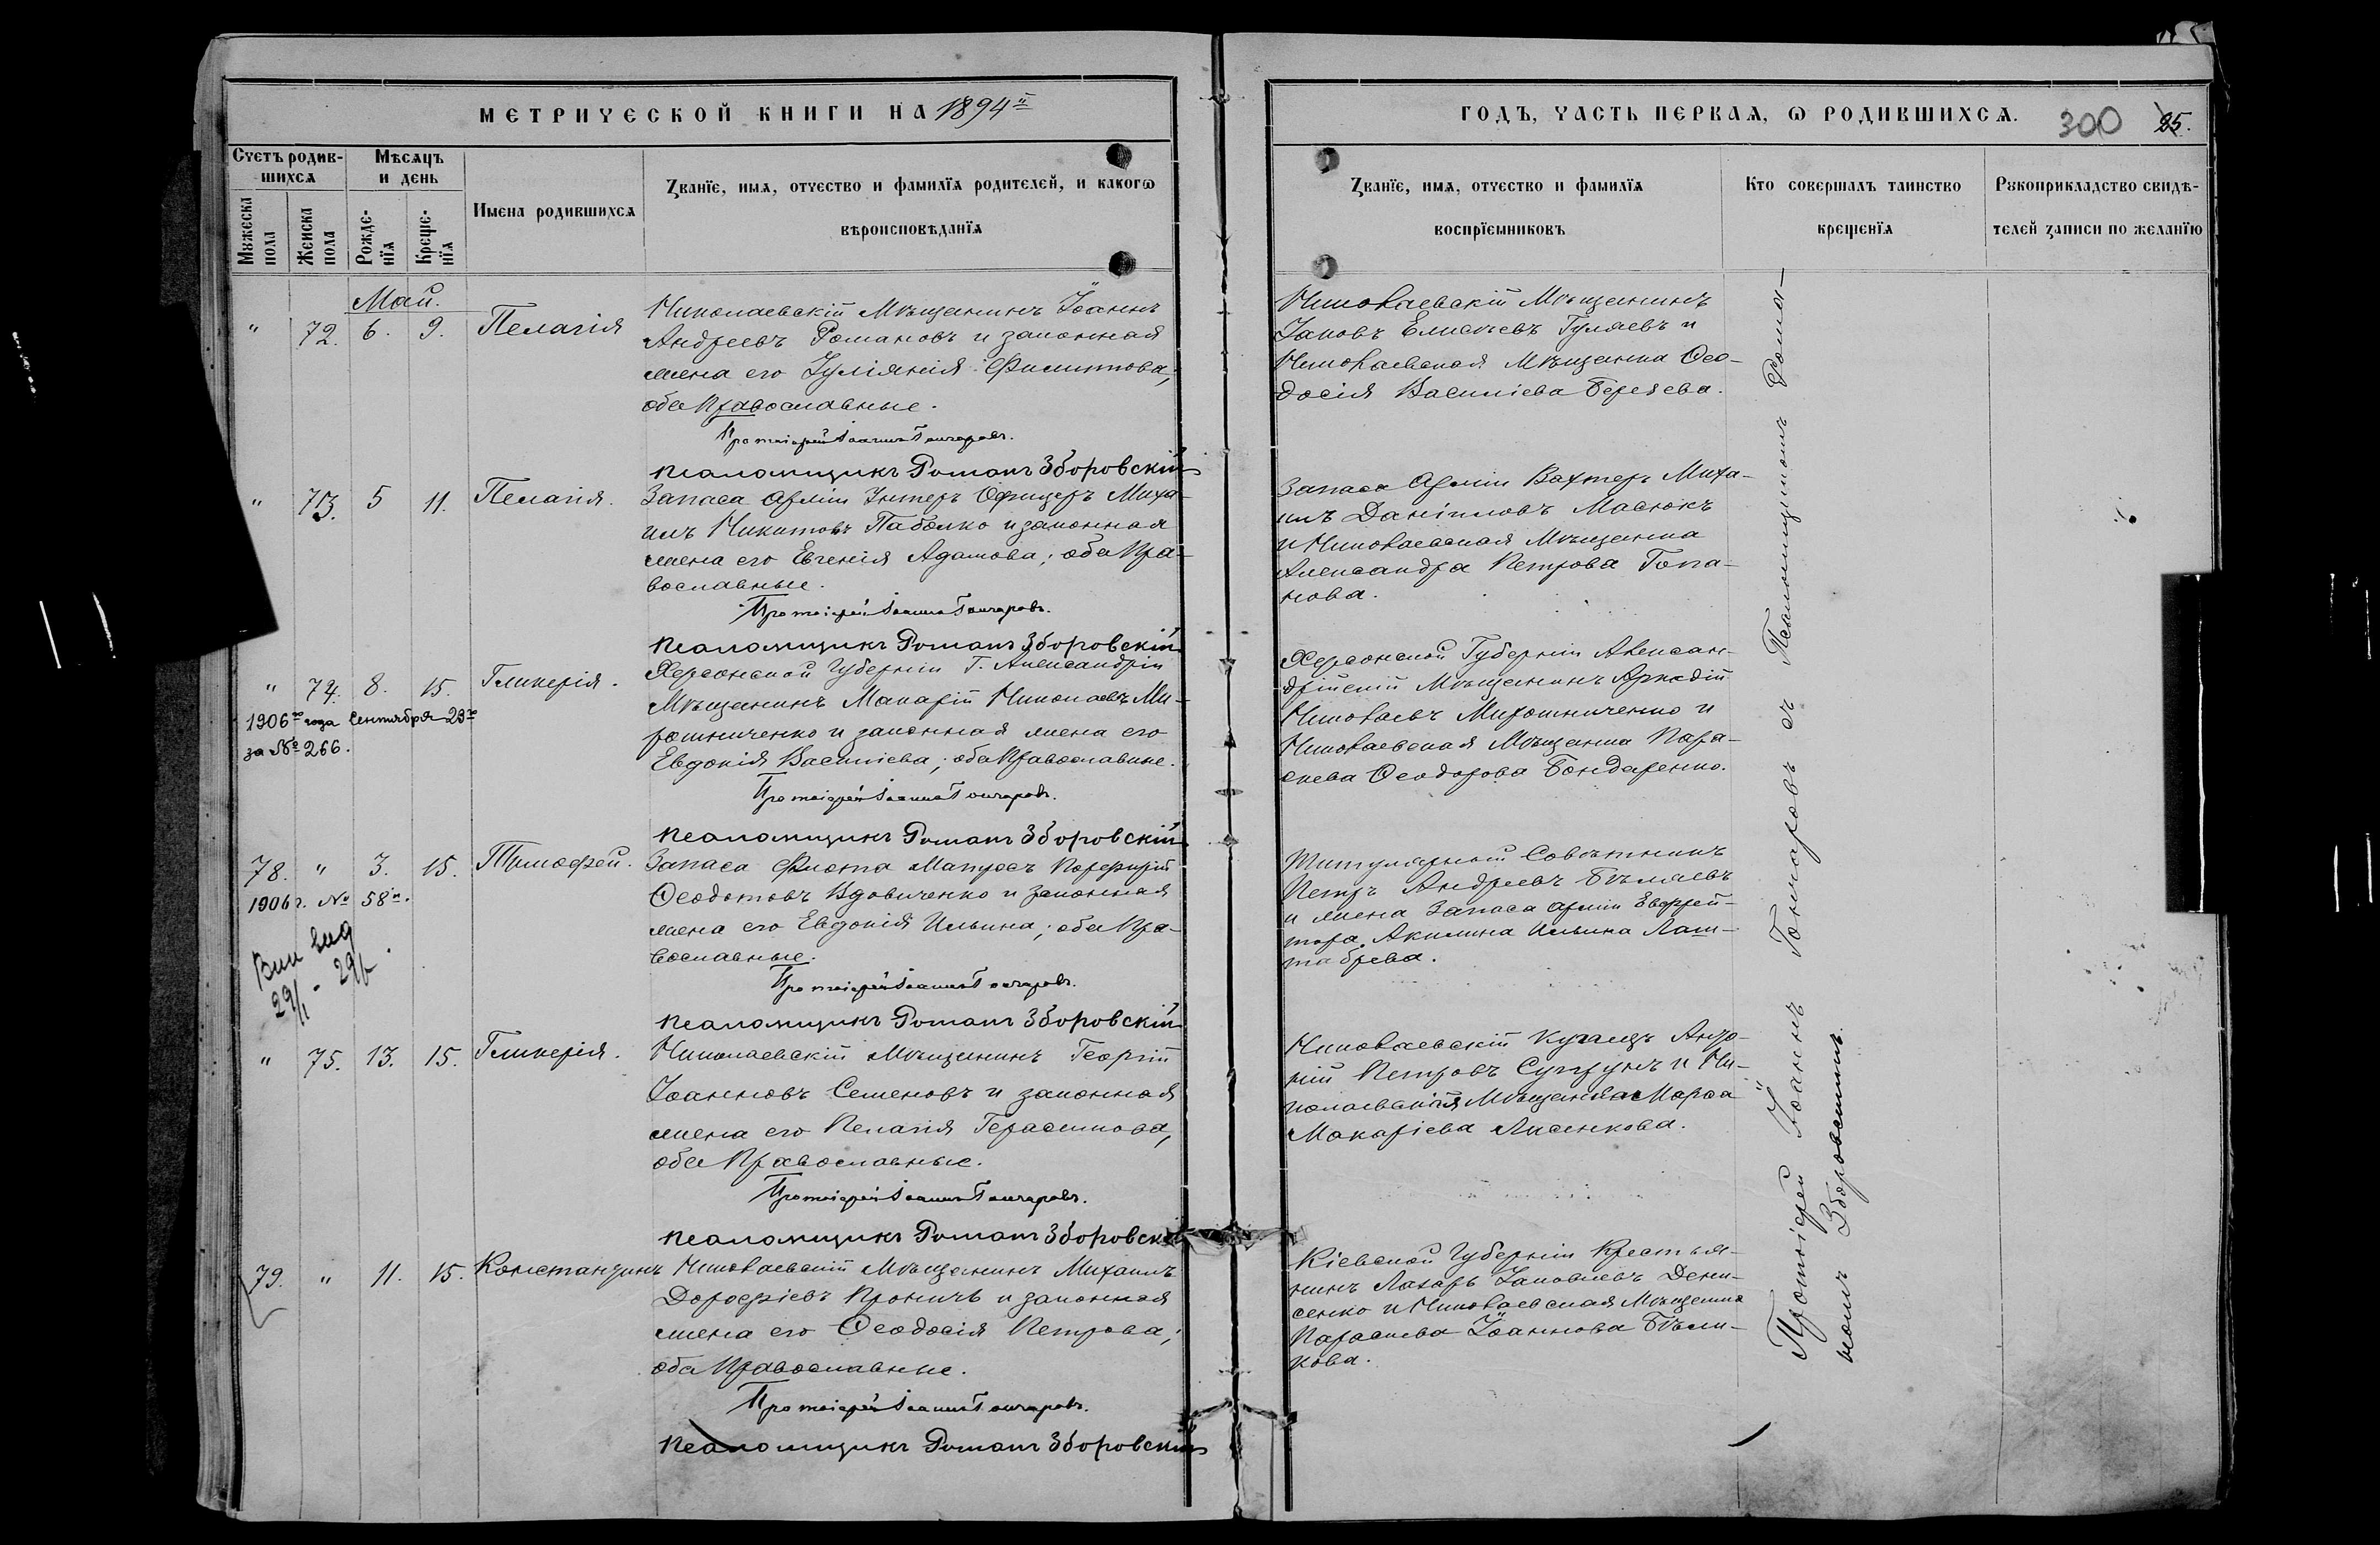 МЕТРИЧЕСКОЙ КНИГИ НА 1894й
ГОДЪ, ЧАСТЬ ПЕРВАЯ, Ѡ РОДИВШИХСЯ.
300 25.
Счетъ родив-
шихся
Мѣсяцъ
и день
Мужеска
пола
Женска
пола
Рожде-
нїя
Креще-
нїя
Имена родившихся
Званїе, имя, отчество и фамилїя родителей, и какогѡ
вѣроисповѣданїя
Званїе, имя, отчество и фамилїя
воспрїемниковъ
Кто совершалъ таинство
крещенїя
Рукоприкладство свидѣ-
телей записи по желанїю
Май.
" 72. 6. 9. Пелагія
Николаевскій Мѣщанинъ Іоаннъ
Андреевъ Романовъ и законная
жена его Іуліянія Филиппова,
оба Православные.
Протоіерей Іоаннъ Гончаровъ.
Псаломщикъ Романъ Зборовскій
Николаевскій Мѣщанинъ
Іаковъ Елисѣевъ Гуляевъ и
Николаевская Мѣщанка Ѳео-
досія Василіева Березева.
" 73. 5 11. Пелагія.
Запаса Арміи Унтеръ Офицеръ Миха-
илъ Никитовъ Паболко и законная
жена его Евгенія Адамова; оба Пра-
вославные.
Протоіерей Іоаннъ Гончаровъ.
Псаломщикъ Романъ Зборовскій
Запаса Арміи Вахтеръ Миха-
илъ Даніиловъ Масюкъ
и Николаевская Мѣщанка
Александра Петрова Гопа-
нова.
" 74. 8. 15. Гликерія.
1906го года Сентября 23го
за № 266.
Херсонской Губерніи Г. Александріи
Мѣщанинъ Макарій Николаевъ Ми-
рошниченко и законная жена его
Евдокія Василіева; оба Православные.
Протоіерей Іоаннъ Гончаровъ.
Псаломщикъ Романъ Зборовскій
Херсонской Губерніи Алексан-
дрійскій Мѣщанинъ Аркадій
Николаевъ Мирошниченко и
Николаевская Мѣщанка Пара-
скева Ѳеодорова Бондаренко.
78. " 3. 15. Тимоѳей.
1906 г. № 58
29/I - 29
Запаса Флота Матросъ Порфирій
Ѳеодотовъ Вдовиченко и законная
жена его Евдокія Ильина; оба Пра-
вославные.
Протоіерей Іоаннъ Гончаровъ.
Псаломщикъ Романъ Зборовскій
Титулярный Совѣтникъ
Петръ Андреевъ Бѣляевъ
и жена Запаса Арміи Ефрей-
тора Акилина Ильина Лаш-
табрева.
" 75. 13. 15. Гликерія.
Николаевскій Мѣщанинъ Георгій
Іоанновъ Семеновъ и законная
жена его Пелагія Герасимова,
оба Православные.
Протоіерей Іоаннъ Гончаровъ.
Псаломщикъ Романъ Зборовскій
Николаевскій Купецъ Андро-
ній Петровъ Супрунъ и Ни-
колаевская Мѣщанка Марѳа
Макаріева Лисенкова.
79. " 11. 15. Константинъ
Николаевскій Мѣщанинъ Михаилъ
Дороѳіевъ Проничъ и законная
жена его Ѳеодосія Петрова;
оба Православные.
Протоіерей Іоаннъ Гончаровъ.
Псаломщикъ Романъ Зборовскій
Кіевской Губерніи Крестья-
нинъ Лазарь Іаковлевъ Дени-
сенко и Николаевская Мѣщанка
Параскева Іоаннова Бѣли-
кова.
Протоіерей Іоаннъ Гончаровъ съ Псаломщикомъ Рома-
номъ Зборовскимъ.